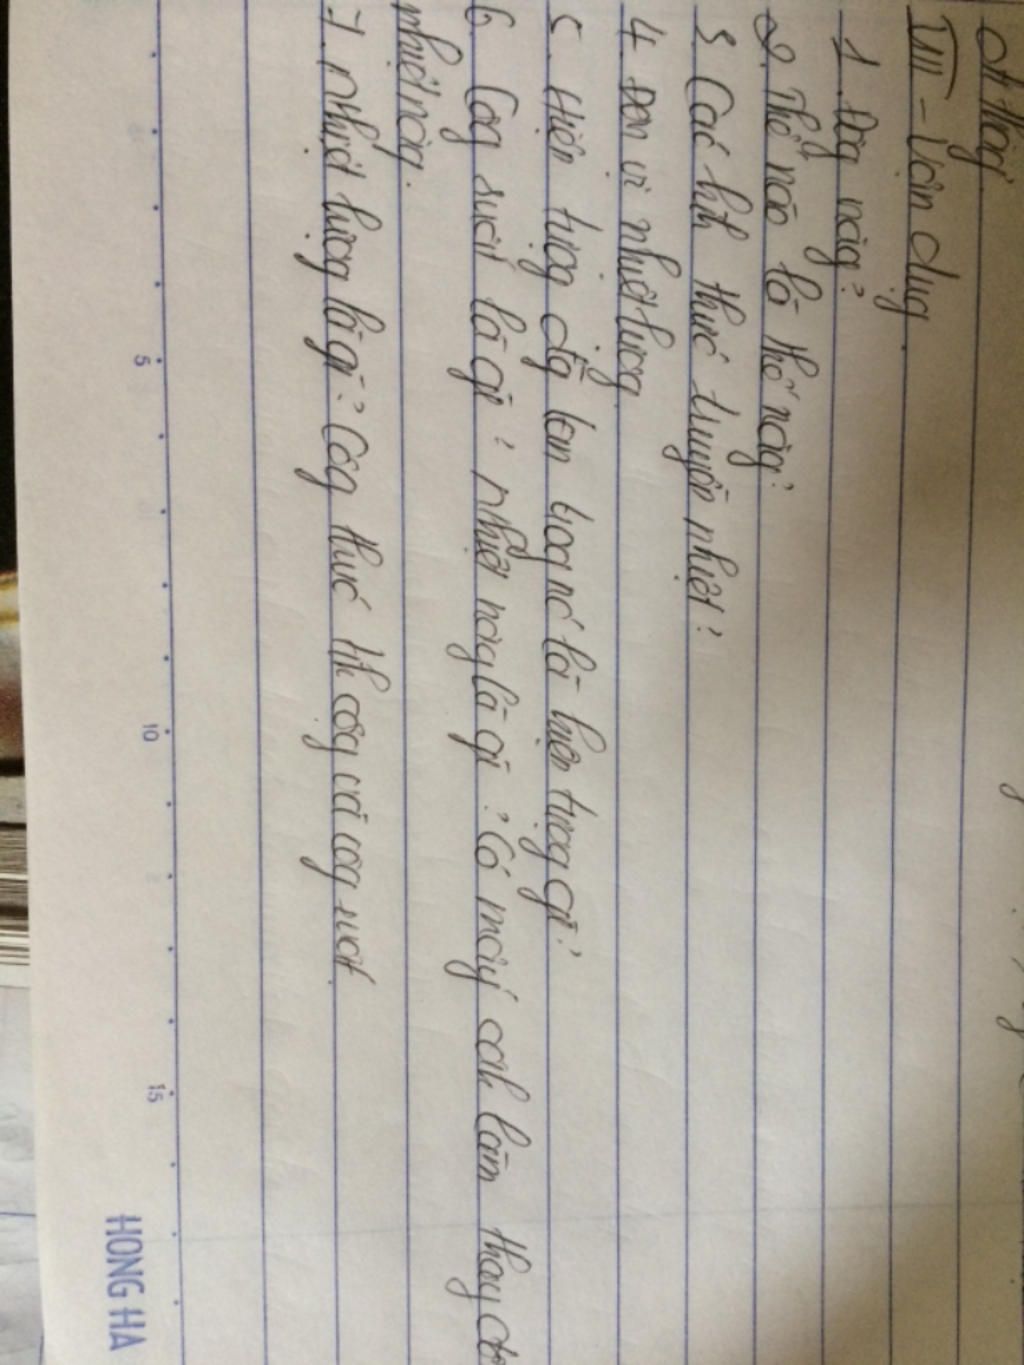 III - Vận dụng.
1. Động năng?
2. Thế nào là thế năng?
3 Các hình thức truyền nhiệt?
4. Đơn vị nhiệt lượng
5. Hiện tượng đg tan trog nc là hiện tượng gì?
6. Công suất là gì? Nhiệt năng là gì? Có mấy cách làm thay đổi
nhiệt năng.
7. Nhiệt lượng là gì? Công thức tính công và công suất
5 10 15
HONG HA